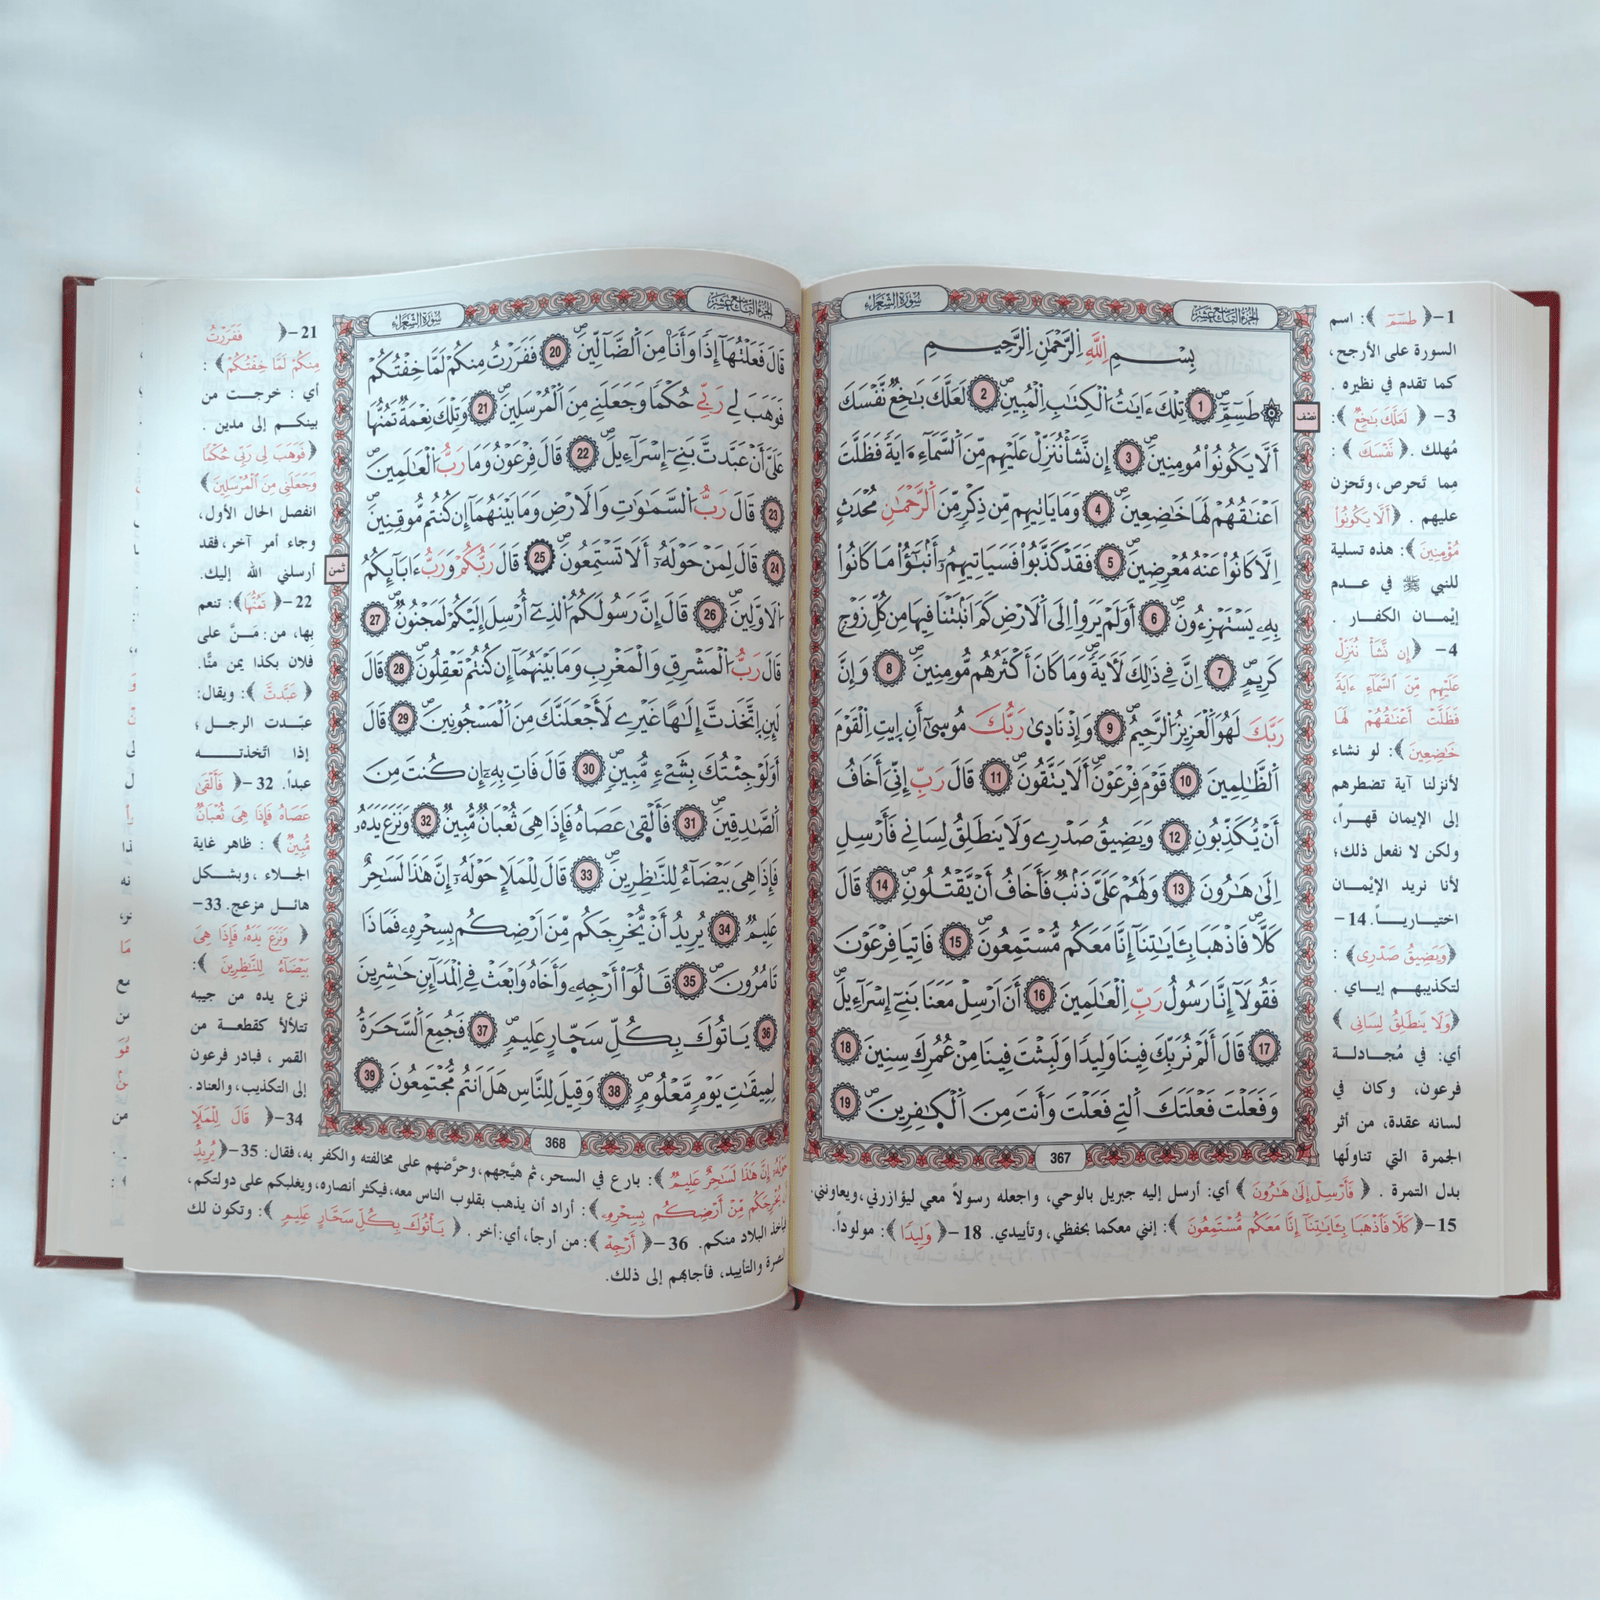 الجزء التاسع عشر
سورة الشعراء
بِسْمِ اِللَّهِ اِلرَّحْمَٰنِ اِلرَّحِيمِ
طَسِٓمِّٓ 1 تِلْكَ ءَايَٰتُ اُلْكِتَٰبِ اِلْمُبِينِ 2 لَعَلَّكَ بَٰخِعٌ نَّفْسَكَ
أَلَّا يَكُونُواْ مُومِنِينَ 3 إِن نَّشَأْ نُنَزِّلْ عَلَيْهِم مِّنَ اَلسَّمَآءِ ايَةً فَظَلَّتَ
اَعْنَٰقُهُمْ لَهَا خَٰضِعِينَ 4 وَمَا يَاتِيهِم مِّن ذِكْرٍ مِّنَ اَلرَّحْمَٰنِ مُحْدَثٍ
اِلَّا كَانُواْ عَنْهُ مُعْرِضِينَ 5 فَقَدْ كَذَّبُواْ فَسَيَاتِيهِمُۥٓ أَنۢبَٰٓؤُاْ مَا كَانُواْ
بِهِۦ يَسْتَهْزِءُونَ 6 أَوَلَمْ يَرَوِاْ اِلَى اَلَارْضِ كَمَ اَنۢبَتْنَا فِيهَا مِن كُلِّ زَوْجٍ
كَرِيمٍ 7 اِنَّ فِي ذَٰلِكَ لَأٓيَةً وَمَا كَانَ أَكْثَرُهُم مُّومِنِينَ 8 وَإِنَّ
رَبَّكَ لَهُوَ اَلْعَزِيزُ اُلرَّحِيمُ 9 وَإِذْ نَادَىٰ رَبُّكَ مُوسَىٰٓ أَنِ اِيتِ اِلْقَوْمَ
اَلظَّٰلِمِينَ 10 قَوْمَ فِرْعَوْنَ أَلَا يَتَّقُونَ 11 قَالَ رَبِّ إِنِّيَ أَخَافُ
أَنْ يُّكَذِّبُونِ 12 وَيَضِيقُ صَدْرِے وَلَا يَنطَلِقُ لِسَانِي فَأَرْسِلِ
اِلَىٰ هَٰرُونَ 13 وَلَهُمْ عَلَيَّ ذَنۢبٌ فَأَخَافُ أَنْ يَّقْتُلُونِ 14 قَالَ
كَلَّا فَاذْهَبَا بِـَٔايَٰتِنَآ إِنَّا مَعَكُم مُّسْتَمِعُونَ 15 فَاتِيَا فِرْعَوْنَ
فَقُولَآ إِنَّا رَسُولُ رَبِّ اِلْعَٰلَمِينَ 16 أَنَ اَرْسِلْ مَعَنَا بَنِےٓ إِسْرَآءِيلَ
17 قَالَ أَلَمْ نُرَبِّكَ فِينَا وَلِيدًا وَلَبِثْتَ فِينَا مِنْ عُمُرِكَ سِنِينَ 18
وَفَعَلْتَ فَعْلَتَكَ اَلتِي فَعَلْتَ وَأَنتَ مِنَ اَلْكَٰفِرِينَ 19
367
نصف
1- ﴿ طسٓمٓ ﴾: اسم
السورة على الأرجح،
كما تقدم في نظيره .
3- ﴿ لَعَلَّكَ بَٰخِعٌ ﴾:
مُهلك . ﴿ نَّفْسَكَ ﴾ :
مِما تَحرص، وتَحزن
عليهم . ﴿أَلَّا يَكُونُواْ
مُؤْمِنِينَ ﴾: هذه تسلية
للنبي ﷺ في عدم
إيْمان الكفار .
4- ﴿ إِن نَّشَأْ نُنَزِّلْ
عَلَيْهِم مِّنَ السَّمَآءِ ءَايَةً
فَظَلَّتْ أَعْنَٰقُهُمْ لَهَا
خَٰضِعِينَ ﴾: لو نشاء
لأنزلنا آية تضطرهم
إلى الإيمان قهراً،
ولكن لا نفعل ذلك؛
لأنا نريد الإيْمان
اختيارياً. 14-
﴿وَيَضِيقُ صَدْرِى﴾ :
لتكذيبهم إياي .
﴿وَلَا يَنطَلِقُ لِسَانِى ﴾
أي: في مُجادلة
فرعون، وكان في
لسانه عقدة، من أثر
الجمرة التي تناولَها
بدل التمرة . ﴿ فَأَرْسِلْ إِلَىٰ هَٰرُونَ ﴾ أي: أرسل إليه جبريل بالوحي، واجعله رسولاً معي ليؤازرني، ويعاونني.
15- ﴿كَلَّا فَاذْهَبَا بِـَٔايَٰتِنَآ إِنَّا مَعَكُم مُّسْتَمِعُونَ ﴾: إنني معكما بحفظي، وتأييدي. 18- ﴿ وَلِيدًا ﴾: مولوداً.
الجزء التاسع عشر
سورة الشعراء
قَالَ فَعَلْتُهَآ إِذًا وَأَنَا مِنَ اَلضَّآلِّينَ 20 فَفَرَرْتُ مِنكُمْ لَمَّا خِفْتُكُمْ
فَوَهَبَ لِي رَبِّي حُكْمًا وَجَعَلَنِي مِنَ اَلْمُرْسَلِينَ 21 وَتِلْكَ نِعْمَةٌ تَمُنُّهَا
عَلَيَّ أَنْ عَبَّدتَّ بَنِےٓ إِسْرَآءِيلَ 22 قَالَ فِرْعَوْنُ وَمَا رَبُّ اُلْعَٰلَمِينَ
23 قَالَ رَبُّ اُلسَّمَٰوَٰتِ وَالَارْضِ وَمَا بَيْنَهُمَآ إِن كُنتُم مُّوقِنِينَ
24 قَالَ لِمَنْ حَوْلَهُۥٓ أَلَا تَسْتَمِعُونَ 25 قَالَ رَبُّكُمْ وَرَبُّ ءَابَآئِكُمُ
اُلَاوَّلِينَ 26 قَالَ إِنَّ رَسُولَكُمُ اُلذِےٓ أُرْسِلَ إِلَيْكُمْ لَمَجْنُونٌ 27
قَالَ رَبُّ اُلْمَشْرِقِ وَالْمَغْرِبِ وَمَا بَيْنَهُمَآ إِن كُنتُمْ تَعْقِلُونَ 28 قَالَ
لَئِنِ اِتَّخَذتَّ إِلَٰهًا غَيْرِے لَأَجْعَلَنَّكَ مِنَ اَلْمَسْجُونِينَ 29 قَالَ
أَوَلَوْ جِئْتُكَ بِشَےْءٍ مُّبِينٍ 30 قَالَ فَاتِ بِهِۦٓ إِن كُنتَ مِنَ
اَلصَّٰدِقِينَ 31 فَأَلْقَىٰ عَصَاهُ فَإِذَا هِيَ ثُعْبَانٌ مُّبِينٌ 32 وَنَزَعَ يَدَهُۥ
فَإِذَا هِيَ بَيْضَآءُ لِلنَّٰظِرِينَ 33 قَالَ لِلْمَلَإِ حَوْلَهُۥٓ إِنَّ هَٰذَا لَسَٰحِرٌ
عَلِيمٌ 34 يُرِيدُ أَنْ يُّخْرِجَكُم مِّنَ اَرْضِكُم بِسِحْرِهِۦ فَمَاذَا
تَامُرُونَ 35 قَالُوٓاْ أَرْجِهِۦ وَأَخَاهُ وَابْعَثْ فِي اِلْمَدَآئِنِ حَٰشِرِينَ
36 يَاتُوكَ بِكُلِّ سَحّ۪ارٍ عَلِيمٍ 37 فَجُمِعَ اَلسَّحَرَةُ
لِمِيقَٰتِ يَوْمٍ مَّعْلُومٍ 38 وَقِيلَ لِلنَّاسِ هَلَ اَنتُم مُّجْتَمِعُونَ 39
368
ثمن
21- ﴿ فَفَرَرْتُ
مِنكُمْ لَمَّا خِفْتُكُمْ﴾ :
أي : خرجت من
بينكم إلى مدين .
﴿فَوَهَبَ لِى رَبِّى حُكْمًا
وَجَعَلَنِى مِنَ الْمُرْسَلِينَ﴾
انفصل الحال الأول،
وجاء أمر آخر، فقد
أرسلني الله إليك.
22- ﴿ تَمُنُّهَا﴾: تنعم
بِها، من: مَنَّ على
فلان بكذا يمن منًّا.
﴿ عَبَّدتَّ ﴾: ويقال:
عبّدت الرجل ؛
إذا اتخذته
عبداً. 32- ﴿ فَأَلْقَىٰ
عَصَاهُ فَإِذَا هِىَ ثُعْبَانٌ
مُّبِينٌ﴾ : ظاهر غاية
الجلاء ، وبشكل
هائل مزعج. 33-
﴿ وَنَزَعَ يَدَهُۥ فَإِذَا هِىَ
بَيْضَآءُ لِلنَّٰظِرِينَ ﴾:
نزع يده من جيبه
تتلألأ كقطعة من
القمر ، فبادر فرعون
إلى التكذيب، والعناد.
34- ﴿ قَالَ لِلْمَلَإِ
حَوْلَهُۥٓ إِنَّ هَٰذَا لَسَٰحِرٌ عَلِيمٌ ﴾: بارع في السحر، ثم هيَّجهم، وحرَّضهم على مخالفته والكفر به، فقال: 35- ﴿ يُرِيدُ
أَن يُخْرِجَكُم مِّنْ أَرْضِكُم بِسِحْرِهِۦ ﴾: أراد أن يذهب بقلوب الناس معه، فيكثر أنصاره، ويغلبكم على دولتكم،
فيأخذ البلاد منكم. 36- ﴿ أَرْجِهْ ﴾: من أرجأ، أي: أخر . ﴿ يَأْتُوكَ بِكُلِّ سَحَّارٍ عَلِيمٍ ﴾: وتكون لك
النصرة والتأييد، فأجابهم إلى ذلك.